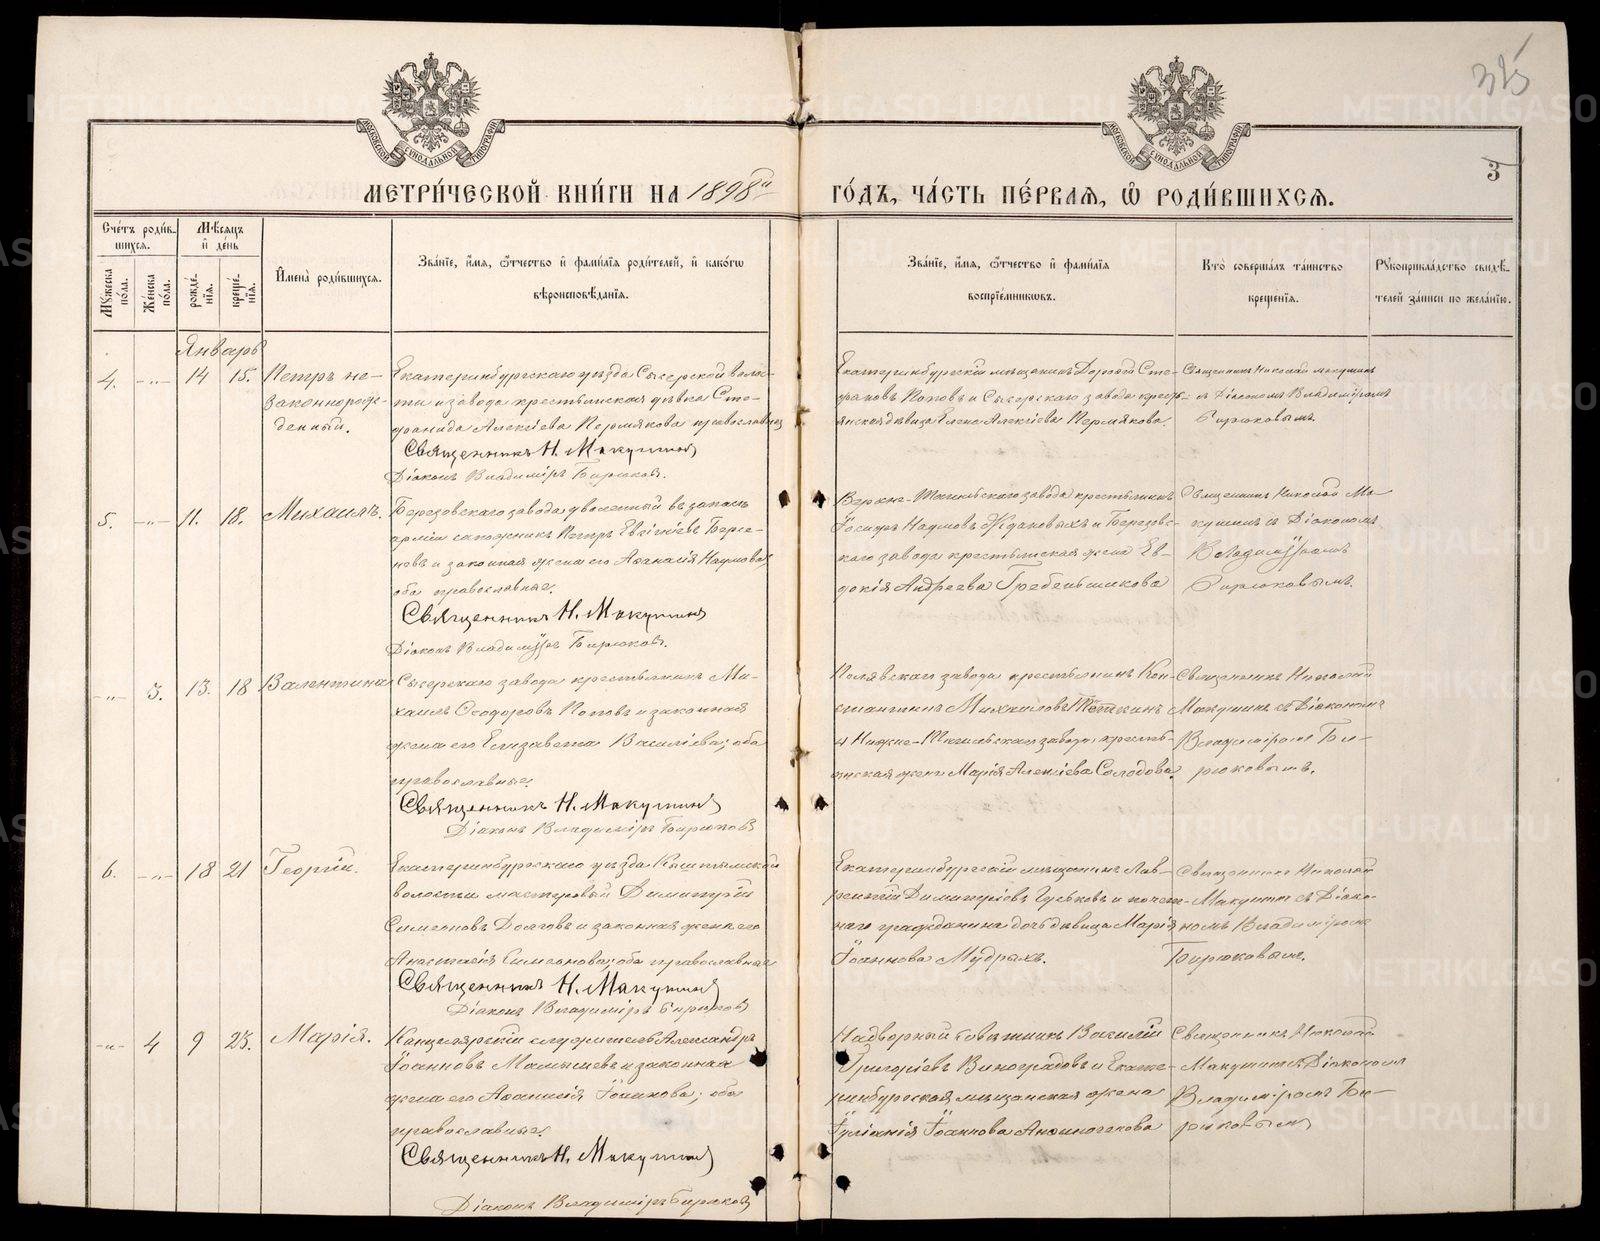 325
3
МЕТРИ́ЧЕСКОЙ КНИ́ГИ НА 1898й
ГО́ДЪ, ЧА́СТЬ ПЕ́РВАЯ, Ѡ҆ РОДИ́ВШИХСЯ.
Сче́тъ роди́в-
шихся.
Мꙋ́жеска по́ла.
Же́нска по́ла.
Мѣ́сяцъ
и҆ де́нь
рожде́нїя.
креще́нїя.
И҆мена̀ роди́вшихся.
Зва́нїе, и҆́мя, ѻ҆́тчество и҆ фами́лїя роди́телей, и҆ како́гѡ
вѣроисповѣ́данїя.
Зва́нїе, и҆́мя, ѻ҆́тчество и҆ фами́лїя
воспрїе́мниковъ.
Кто̀ соверша́лъ та́инство
креще́нїя.
Рꙋкоприкла́дство свидѣ́-
телей за́писи по жела́нїю.
Январь
4. -"- 14 15.
Петръ не-
законнорож-
денный.
Екатеринбургскаго уѣзда Сысертской волос-
ти и завода крестьянская дѣвка Сте-
фанида Алексіева Пермякова православная
Священникъ Н. Макушинъ
Діаконъ Владиміръ Бирюковъ.
Екатеринбургскій мѣщанинъ Дорофей Сте-
фановъ Поповъ и Сысерскаго завода кресть-
янская дѣвица Елена Алексіева Пермякова.
Священникъ Николай Макушинъ
съ Діакономъ Владиміромъ
Бирюковымъ.
5. -"- 11. 18.
Михаилъ.
Березовскаго завода уволенный въ запасъ
арміи сапожникъ Петръ Евгеніевъ Берсе-
невъ и законная жена его Аѳанасія Наумова,
оба православные.
Священникъ Н. Макушинъ
Діаконъ Владиміръ Бирюковъ.
Верхне-Тагильскаго завода крестьянинъ
Іосифъ Наумовъ Ждановыхъ и Березовс-
каго завода крестьянская жена Ев-
докія Андреева Гребеньщикова
Священникъ Николай Ма-
кушинъ съ Діакономъ
Владиміромъ
Бирюковымъ.
-"- 3. 13. 18
Валентина
Сысерскаго завода крестьянинъ Ми-
хаилъ Ѳеодоровъ Поповъ и законная
жена его Елизавета Васильева; оба
православные.
Священникъ Н. Макушинъ
Діаконъ Владиміръ Бирюковъ
Полевскаго завода крестьянинъ Кон-
стантинъ Михаиловъ Тёткинъ
и Нижне-Тагильскаго завода кресть-
янская жена Марія Алексіева Солодова.
Священникъ Николай
Макушинъ съ Діакономъ
Владиміромъ Би-
рюковымъ.
6. -"- 18 21
Георгій.
Екатеринбургскаго уѣзда Кыштымской
волости мастеровой Димитрій
Симеоновъ Долговъ и законная жена его
Анастасія Симеонова; оба православные
Священникъ Н. Макушинъ
Діаконъ Владиміръ Бирюковъ
Екатеринбургскій мѣщанинъ Лав-
рентій Димитріевъ Губковъ и почет-
наго гражданина дочь дѣвица Марія
Іоаннова Мудрыхъ.
Священникъ Николай
Макушинъ съ Діако-
номъ Владиміромъ
Бирюковымъ.
-"- 4 9 23.
Марія.
Канцелярскій служитель Александръ
Іоанновъ Мамышевъ и законная
жена его Аѳанасія Іоаннова; оба
православные.
Священникъ Н. Макушинъ
Діаконъ Владиміръ Бирюковъ
Надворный Совѣтникъ Василій
Григоріевъ Виноградовъ и Екате-
ринбургская мѣщанская жена
Іуліанія Іоаннова
Священникъ Николай
Макушинъ съ Діакономъ
Владиміромъ Би-
рюковымъ